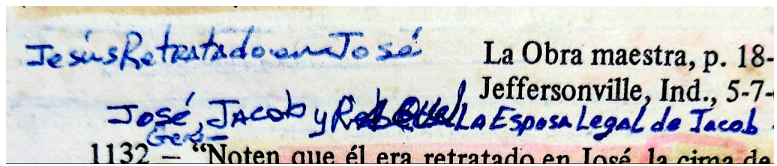 Jesús Retratado en José
La Obra maestra, p. 18-
Jeffersonville, Ind., 5-7-
José, Jacob y La Esposa Legal de Jacob
1132 – “Noten que él era retratado en José, la cima de